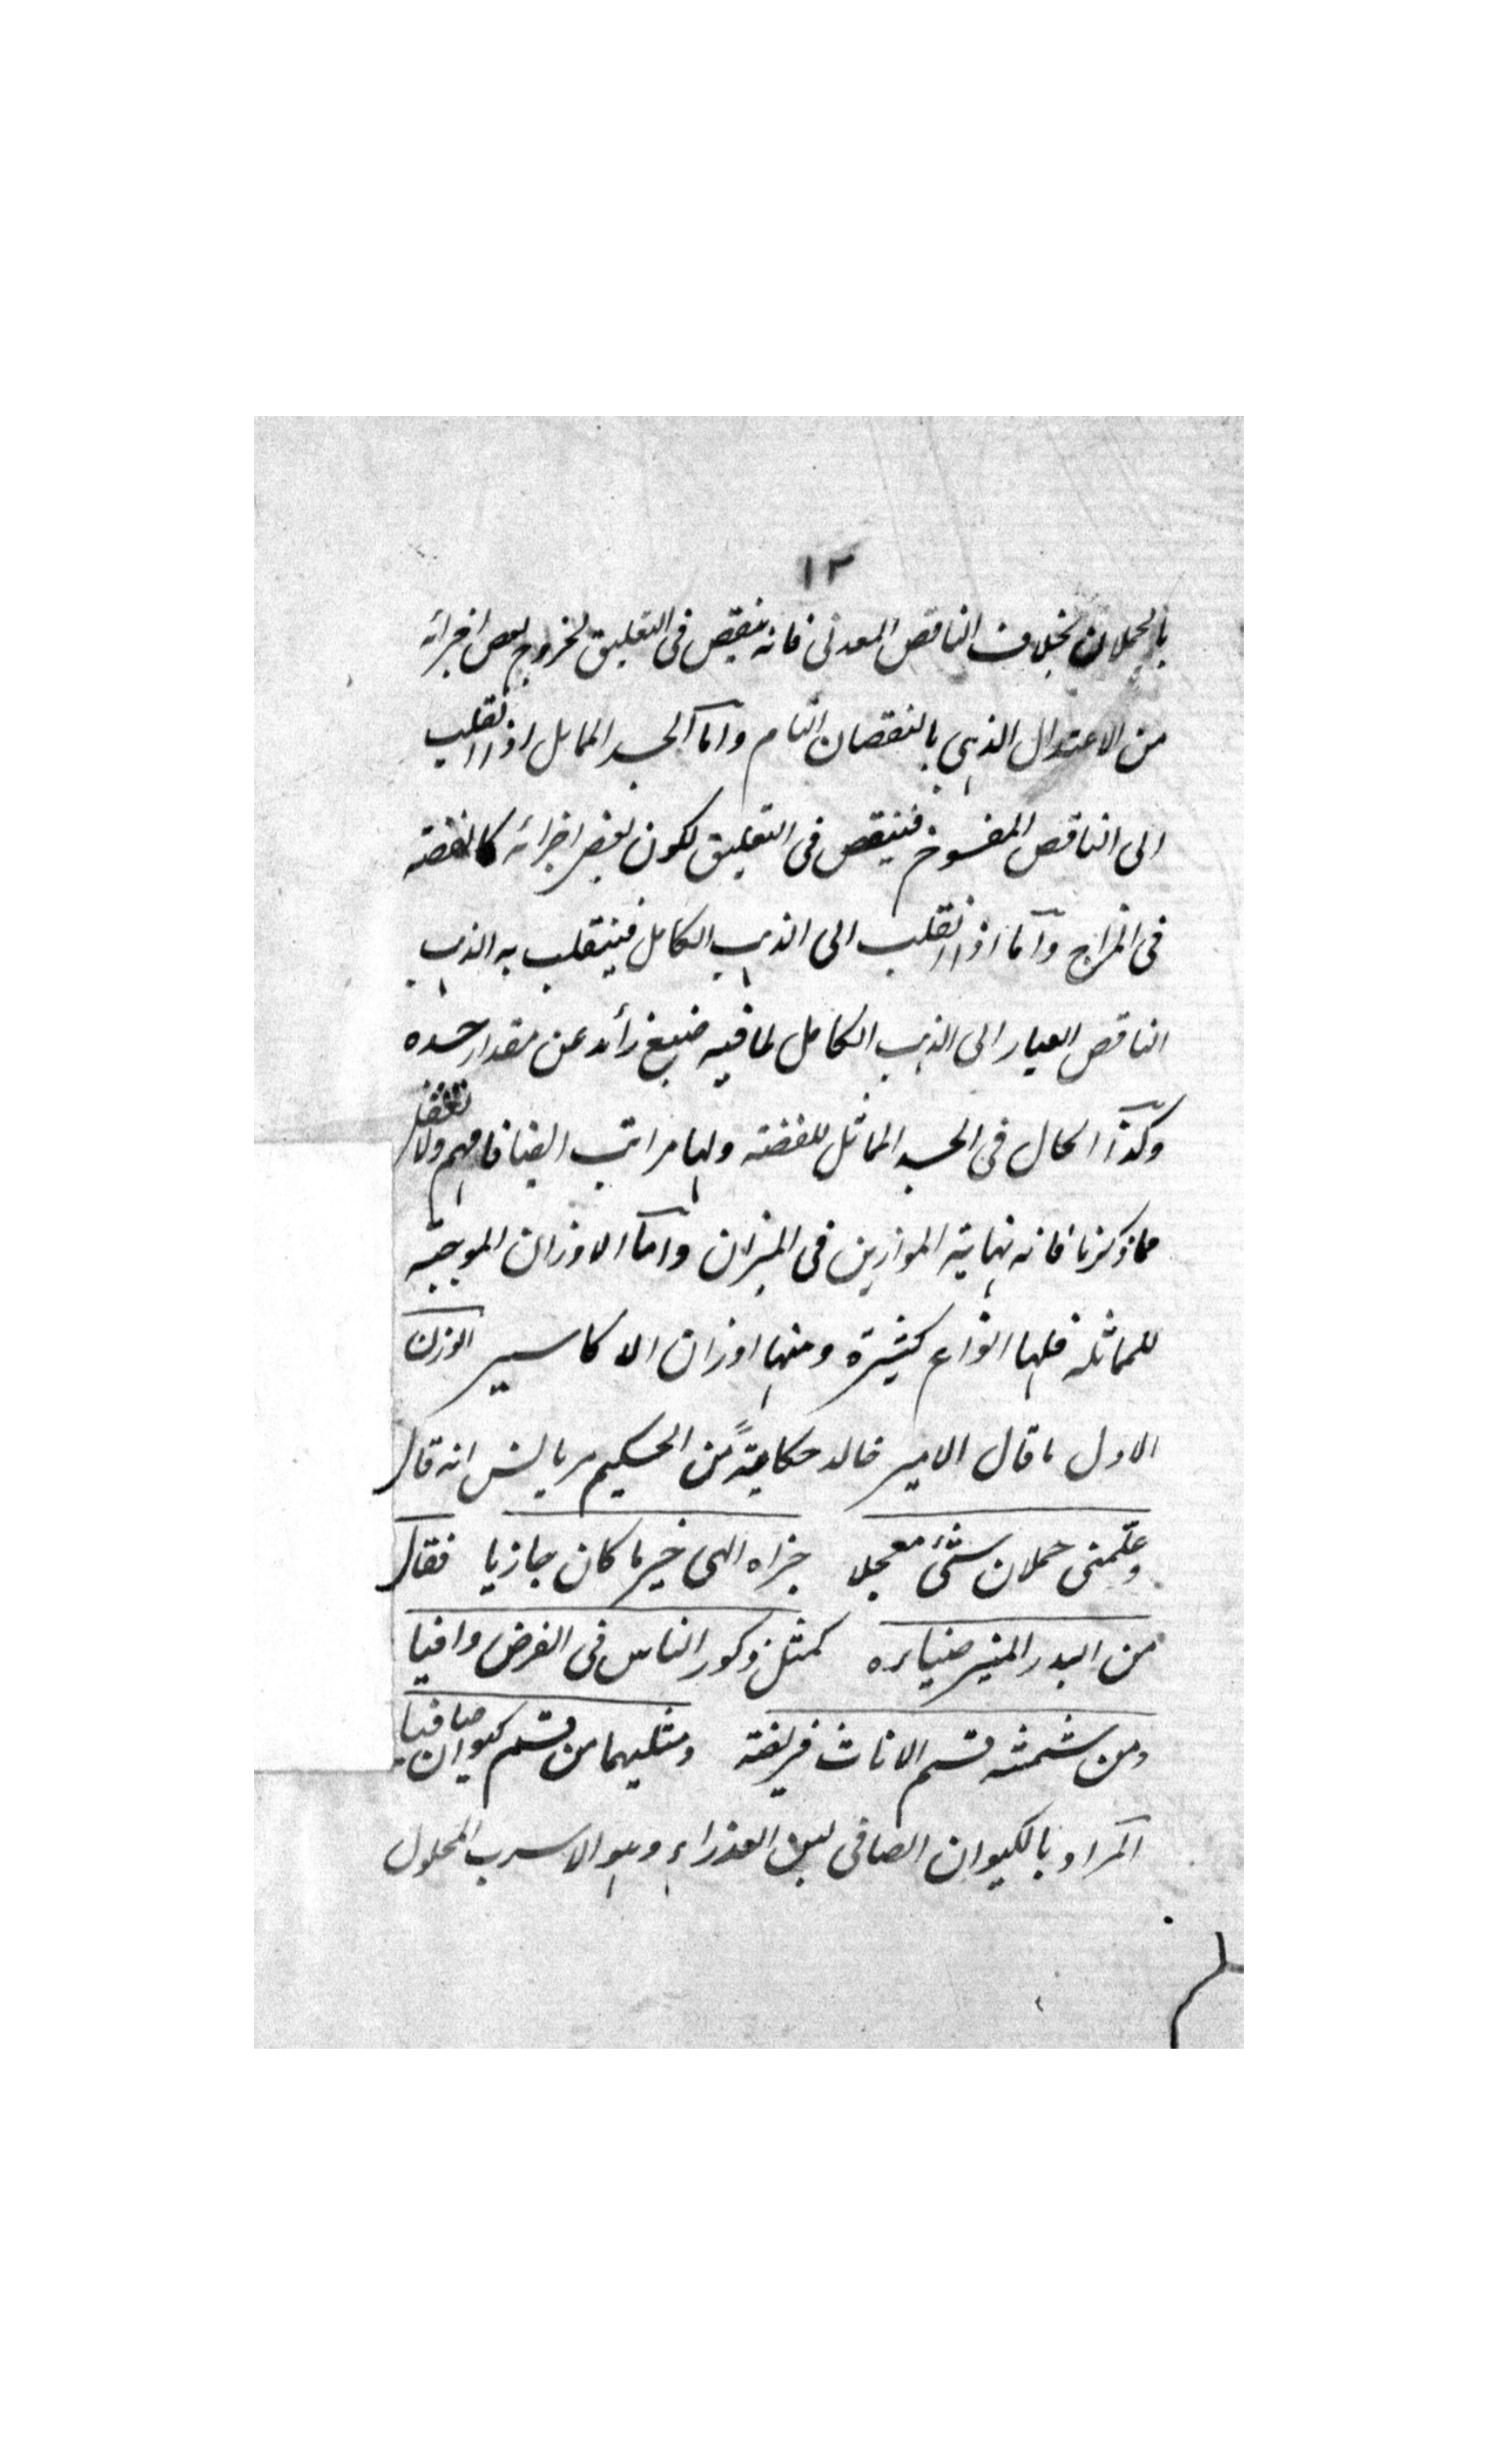 ١٢
بالحملان بخلاف الناقص المعدنى فانه ينقص فى التعليق لخروج بعض اجزائه
من الاعتدال الذهبى بالنقصان التام واما الجسد المماثل اذا انقلب
الى الناقص المفسوخ فينقص فى التعليق لكون بعض اجزائه كالفضته
فى المزاج واما اذا انقلب الى الذهب الكامل فينقلب به الذهب
الناقص العيار الى الذهب الكامل لما فيه صبغ زائد عن مقدار جسده
وكذا الحال فى الجسد المماثل للفضته ولها مراتب ايضا فافهم ولا تغفل
مما ذكرنا فانه نهاية الموازين فى الميزان واما الاوزان الموجبة
للمماثله فلها انواع كثيرة ومنها اوزان الاكاسير الوزن
الاول ما قال الامير خالد حكايةً من الحكيم مريانس انه قال
وعلمنى حملان شئ معجلا جزاه الهى خير ما كان جازيا فقال
من البدر المنير ضياءه كمثل ذكور الناس فى الفرض وافيا
ومن شمشه قسم الاناث فريضة ومثليهما من قسم كيوان صافيا
المراد بالكيوان الصافى لبن العذراء وهو الاسرب المحلول